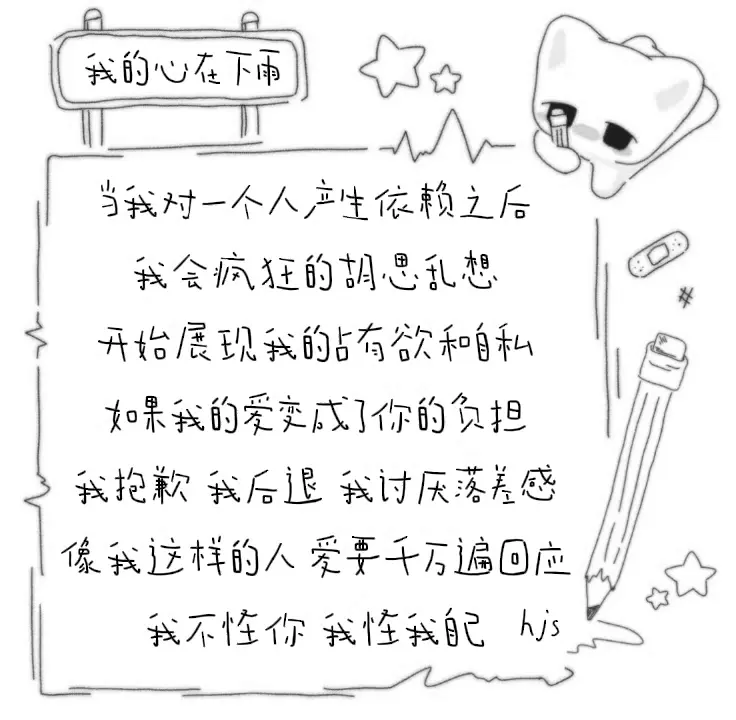 我的心在下雨
当我对一个人产生依赖之后
我会疯狂的胡思乱想
开始展现我的占有欲和自私
如果我的爱变成了你的负担
我抱歉 我后退 我讨厌落差感
像我这样的人 爱要千万遍回应
我不怪你 我怪我自己 hjs